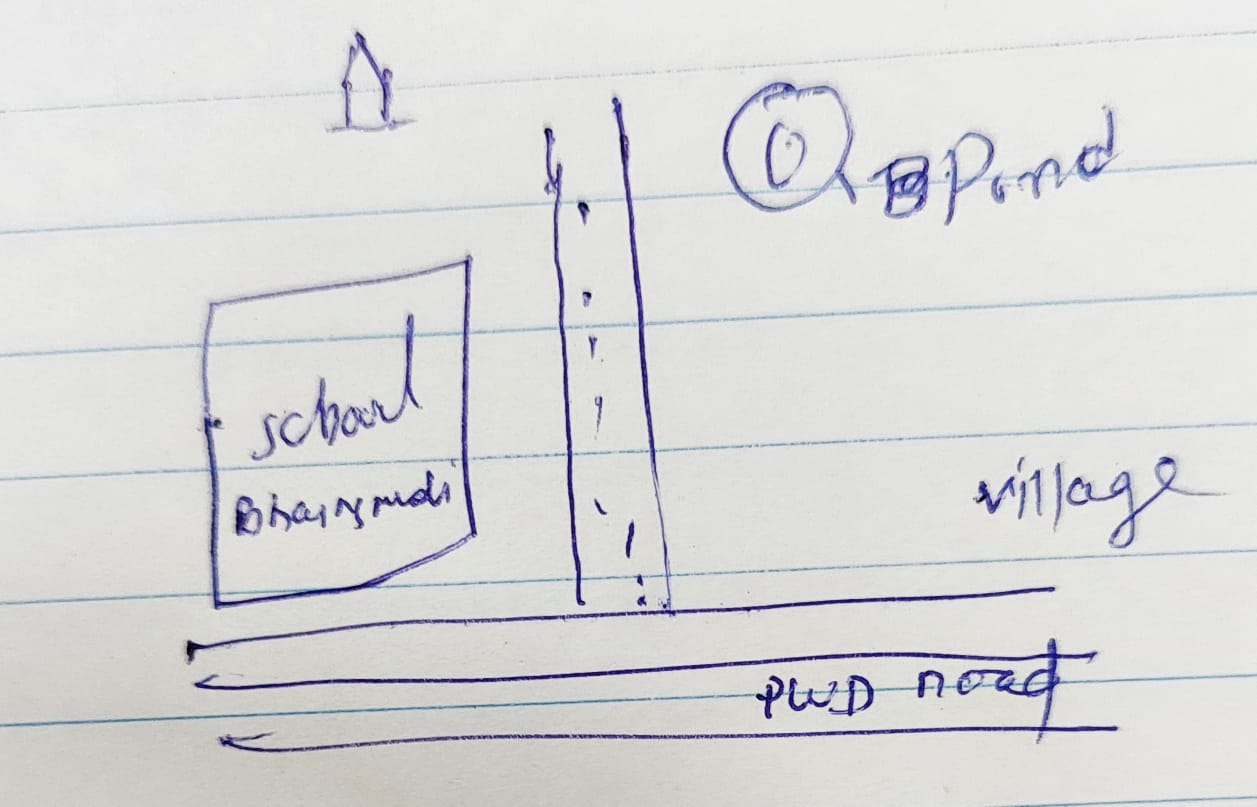 Pond
school
village
PWD road